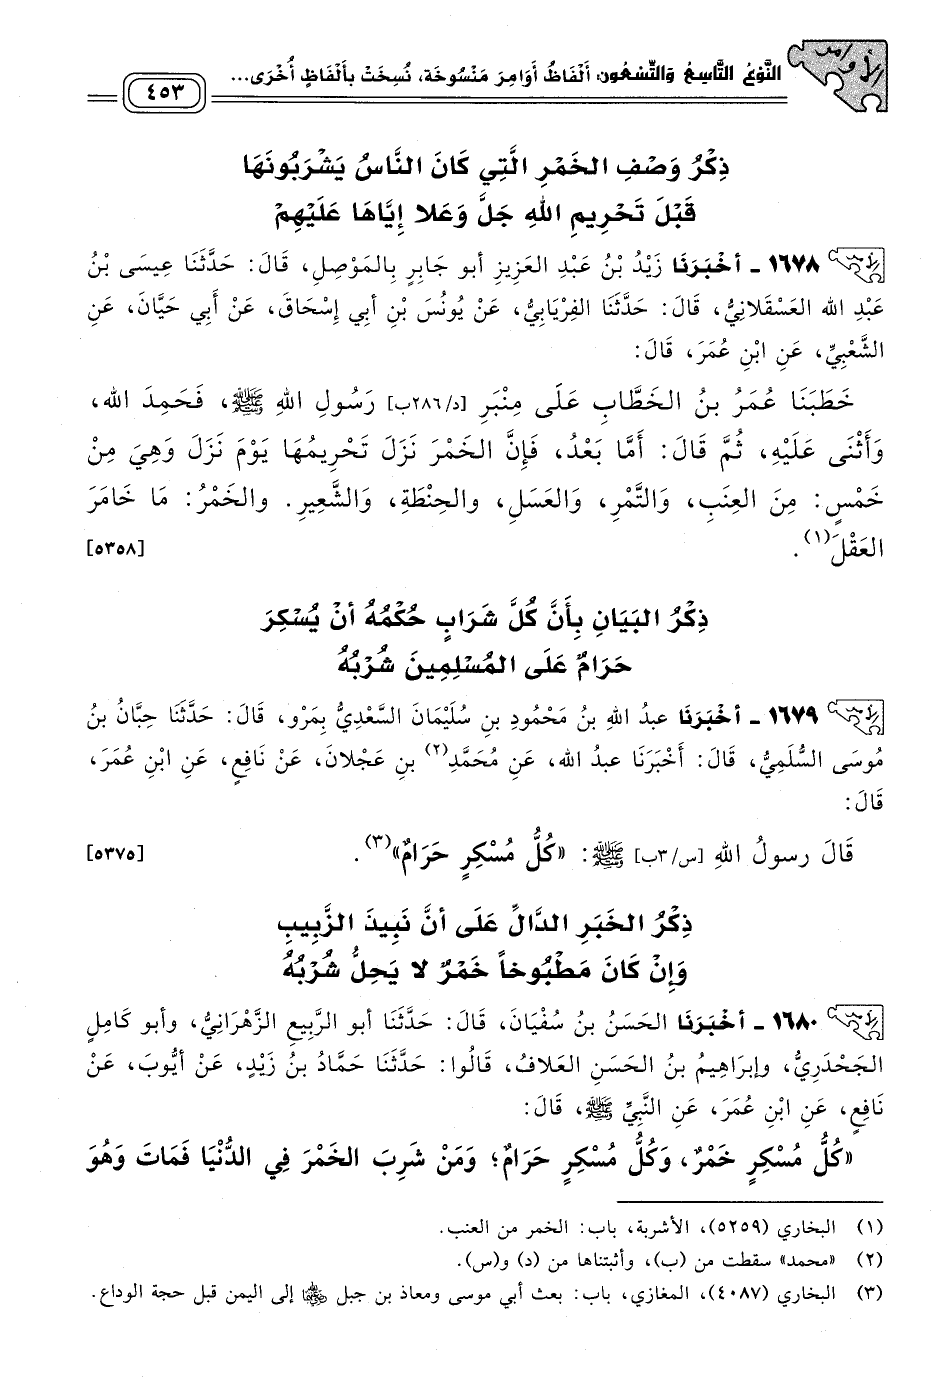 الأوامر
النَّوْعُ التَّاسِعُ وَالتِّسْعُون: أَلْفَاظُ أَوَامِرَ مَنْسُوخَة، نُسِخَتْ بِأَلْفَاظٍ أُخْرَى...
٤٥٣
ذِكْرُ وَصْفِ الخَمْرِ الَّتِي كَانَ النَّاسُ يَشْرَبُونَهَا
قَبْلَ تَحْرِيمِ اللهِ جَلَّ وَعَلا إِيَّاهَا عَلَيْهِمْ
١٦٧٨ - أخْبَرَنَا زَيْدُ بْنُ عَبْدِ العَزِيزِ أبو جَابِرٍ بِالمَوْصِلِ، قَالَ: حَدَّثَنَا عِيسَى بْنُ
عَبْدِ الله العَسْقَلانِيُّ، قَالَ: حَدَّثَنَا الفِرْيَابِيُّ، عَنْ يُونُسَ بْنِ أبِي إِسْحَاقَ، عَنْ أبِي حَيَّانَ، عَنِ
الشَّعْبِيِّ، عَنِ ابْنِ عُمَرَ، قَالَ:
خَطَبَنَا عُمَرُ بنُ الخَطَّابِ عَلَى مِنْبَرِ [د/٢٨٦ب] رَسُولِ اللهِ ﷺ، فَحَمِدَ الله،
وَأَثْنَى عَلَيْهِ، ثُمَّ قَالَ: أَمَّا بَعْدُ، فَإِنَّ الخَمْرَ نَزَلَ تَحْرِيمُهَا يَوْمَ نَزَلَ وَهِيَ مِنْ
خَمْسٍ: مِنَ العِنَبِ، وَالتَّمْرِ، وَالعَسَلِ، والحِنْطَةِ، وَالشَّعِيرِ. والخَمْرُ: مَا خَامَرَ
العَقْلَ(١). [٥٣٥٨]
ذِكْرُ البَيَانِ بِأَنَّ كُلَّ شَرَابٍ حُكْمُهُ أنْ يُسْكِرَ
حَرَامٌ عَلَى المُسْلِمِينَ شُرْبُهُ
١٦٧٩ - أخْبَرَنَا عبدُ اللهِ بنُ مَحْمُودِ بنِ سُلَيْمَانَ السَّعْدِيُّ بِمَرْو، قَالَ: حَدَّثَنَا حِبَّانُ بنُ
مُوسَى السُّلَمِيُّ، قَالَ: أَخْبَرَنَا عبدُ الله، عَنِ مُحَمَّدِ(٢) بنِ عَجْلانَ، عَنْ نَافِعٍ، عَنِ ابْنِ عُمَرَ،
قَالَ:
قَالَ رسولُ اللهِ [س/٣ب] ﷺ: «كُلُّ مُسْكِرٍ حَرَامٌ»(٣). [٥٣٧٥]
ذِكْرُ الخَبَرِ الدَّالِّ عَلَى أنَّ نَبِيذَ الزَّبِيبِ
وَإِنْ كَانَ مَطْبُوخاً خَمْرٌ لا يَحِلُّ شُرْبُهُ
١٦٨٠ - أخْبَرَنَا الحَسَنُ بنُ سُفْيَانَ، قَالَ: حَدَّثَنَا أبو الرَّبِيعِ الزَّهْرَانِيُّ، وأبو كَامِلٍ
الجَحْدَرِيُّ، وإبرَاهِيمُ بنُ الحَسَنِ العَلافُ، قَالُوا: حَدَّثَنَا حَمَّادُ بنُ زَيْدٍ، عَنْ أيُّوبَ، عَنْ
نَافِعٍ، عَنِ ابْنِ عُمَرَ، عَنِ النَّبِيِّ ﷺ، قَالَ:
«كُلُّ مُسْكِرٍ خَمْرٌ، وَكُلُّ مُسْكِرٍ حَرَامٌ؛ وَمَنْ شَرِبَ الخَمْرَ فِي الدُّنْيَا فَمَاتَ وَهُوَ
(١) البخاري (٥٢٥٩)، الأشربة، باب: الخمر من العنب.
(٢) «محمد» سقطت من (ب)، وأثبتناها من (د) و(س).
(٣) البخاري (٤٠٨٧)، المغازي، باب: بعث أبي موسى ومعاذ بن جبل إلى اليمن قبل حجة الوداع.